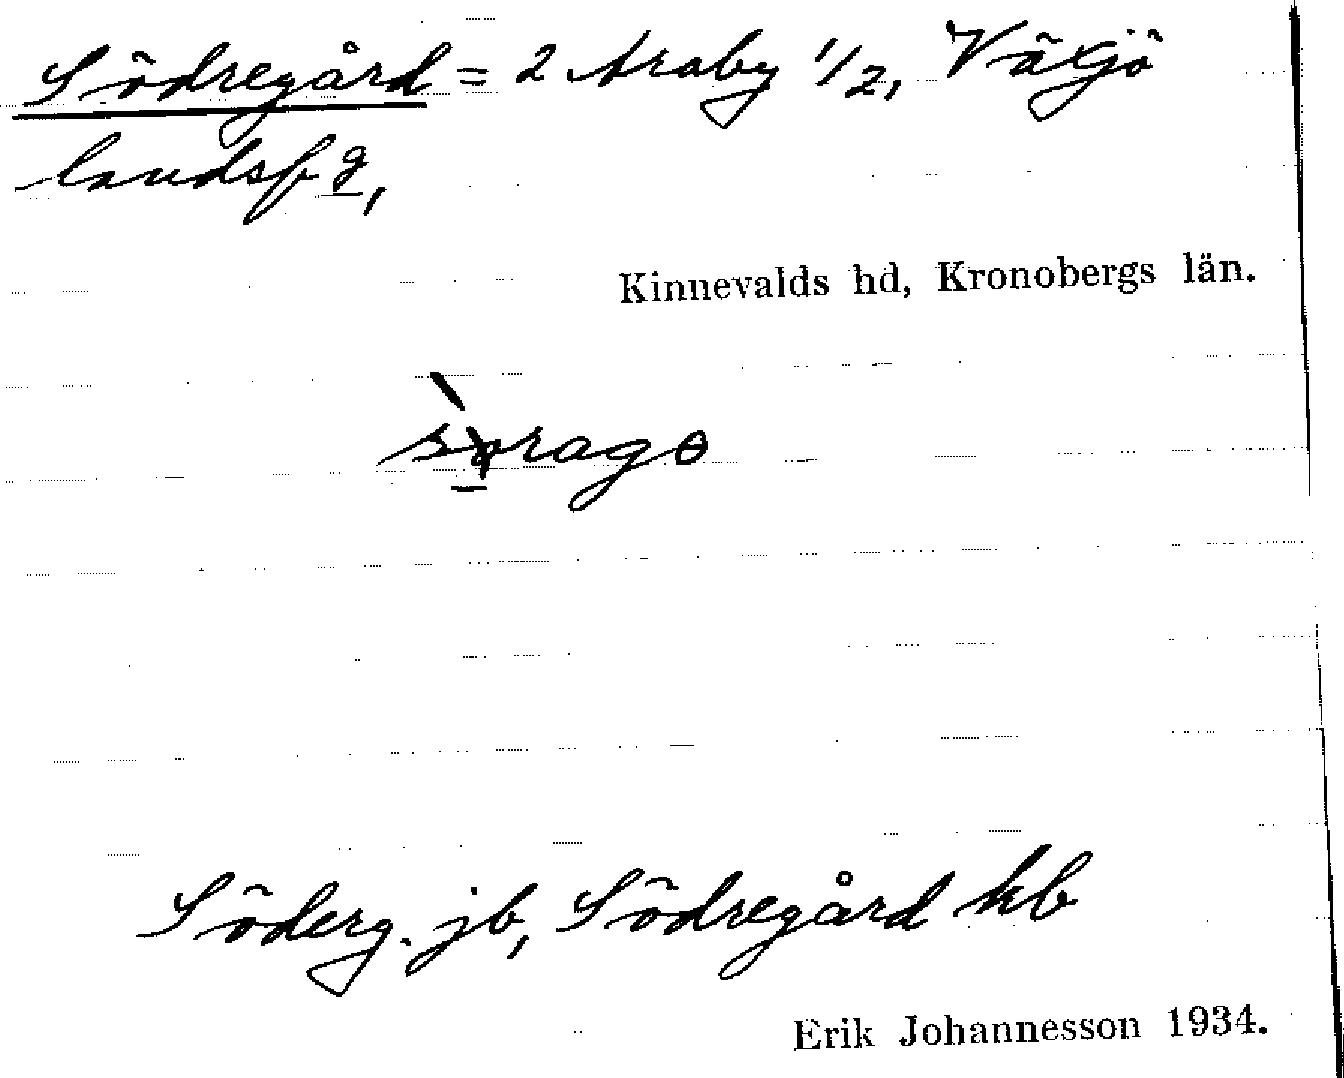 Södregård = 2 Araby 1/2, Växjö
landsfg,
Kinnevalds hd, Kronobergs län.
Söderg. jb, Södregård kb
Erik Johannesson 1934.